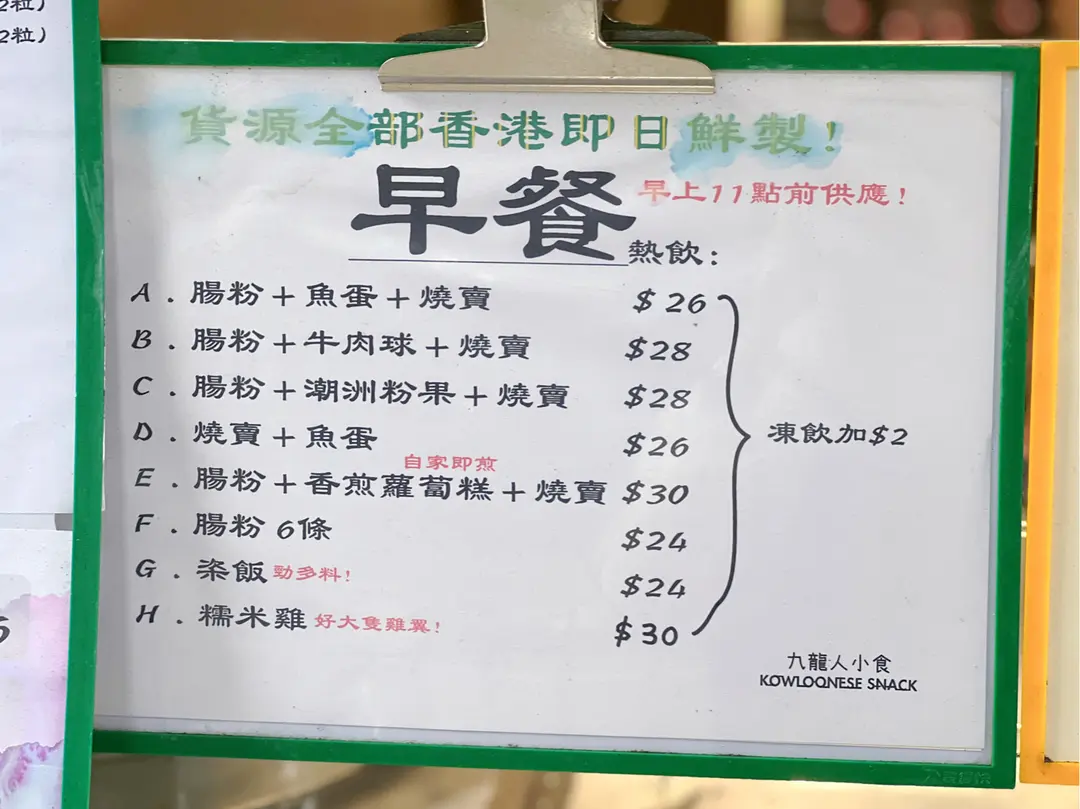 2粒)
2粒)
貨源全部香港即日鮮製!
早餐
早上11點前供應!
熱飲:
A. 腸粉+魚蛋+燒賣 $26
B. 腸粉+牛肉球+燒賣 $28
C. 腸粉+潮洲粉果+燒賣 $28
D. 燒賣+魚蛋 $26
自家即煎
E. 腸粉+香煎蘿蔔糕+燒賣 $30
F. 腸粉 6條 $24
G. 粢飯 勁多料! $24
H. 糯米雞 好大隻雞翼! $30
凍飲加$2
九龍人小食
KOWLOONESE SNACK